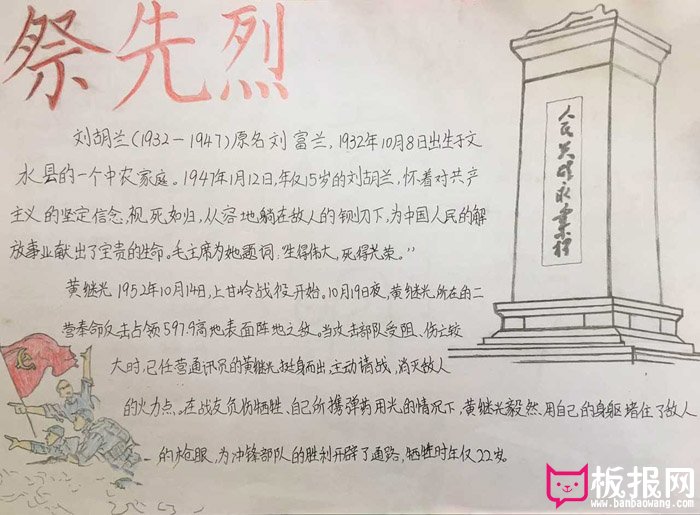 祭先烈
刘胡兰(1932-1947)原名刘富兰,1932年10月8日出生于文
水县的一个中农家庭。1947年1月12日,年仅15岁的刘胡兰,怀着对共产
主义的坚定信念,视死如归,从容地躺在敌人的铡刀下,为中国人民的解
放事业献出了宝贵的生命。毛主席为她题词:“生得伟大,死得光荣。”
黄继光1952年10月14日,上甘岭战役开始。10月19日夜,黄继光所在的二
营奉命反击占领597.9高地表面阵地之敌。当攻击部队受阻、伤亡较
大时,已任营通讯员的黄继光挺身而出,主动请战,消灭敌人
的火力点。在战友负伤牺牲、自己所携弹药用光的情况下,黄继光毅然用自己的身躯堵住了敌人
的枪眼,为冲锋部队的胜利开辟了通路,牺牲时年仅22岁。
人民英雄永垂不朽
板报网
www.banbaowang.com